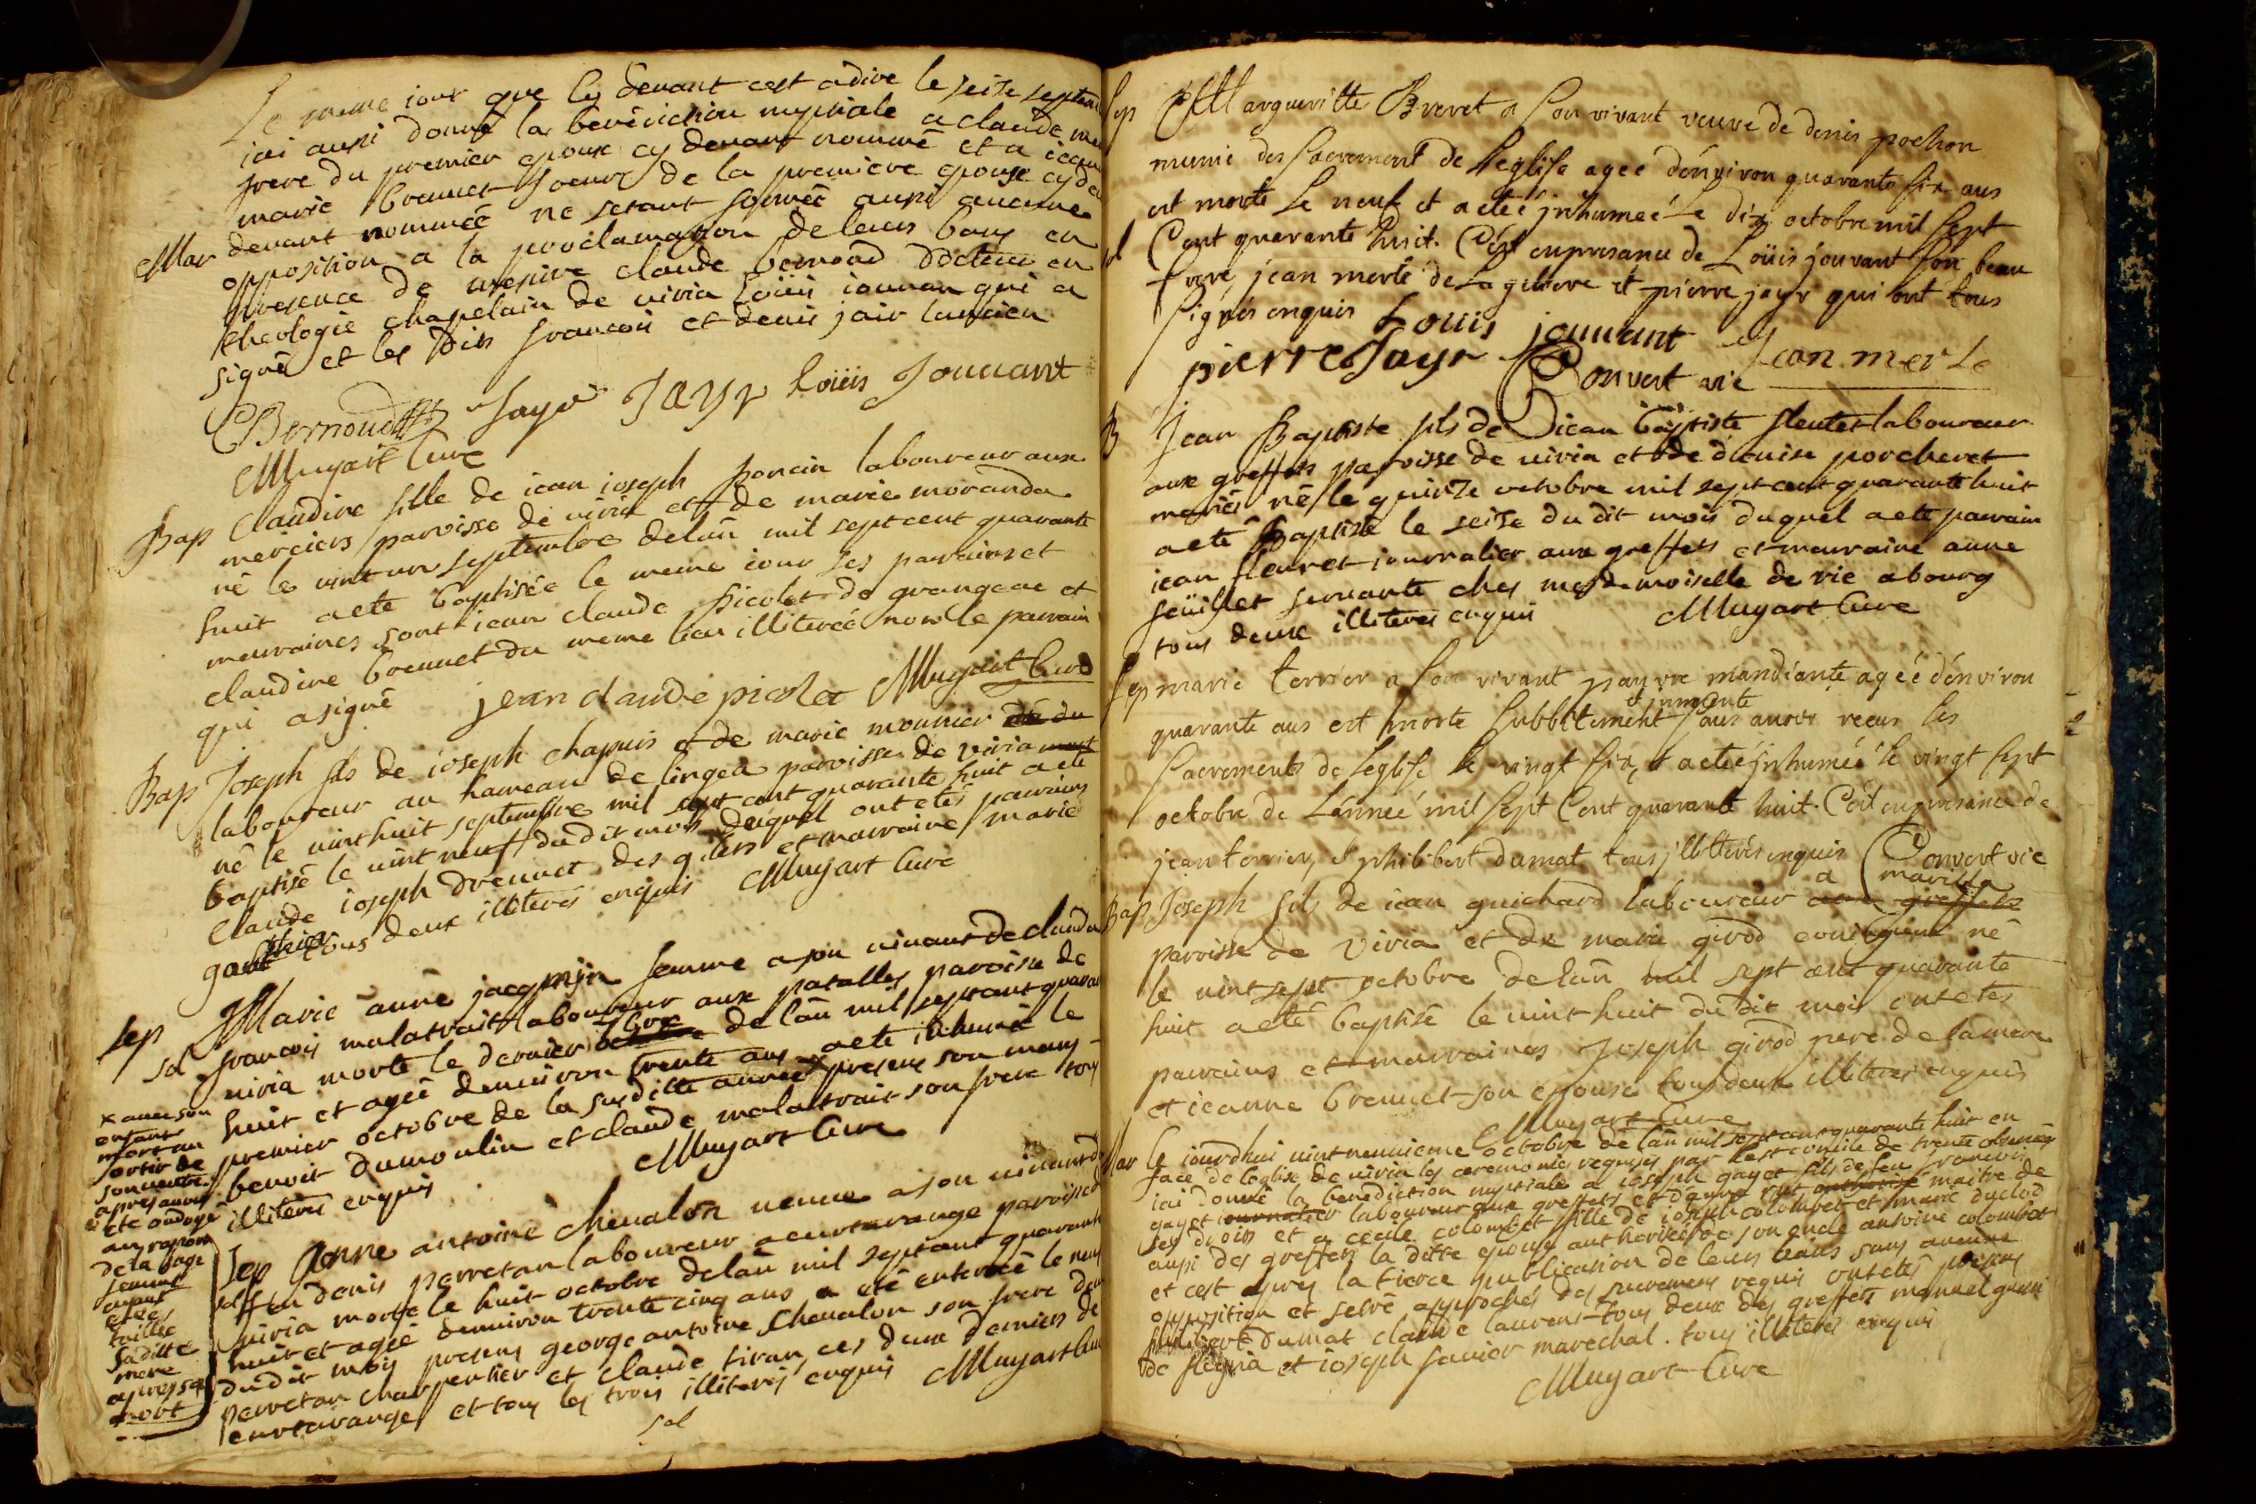 Le meme iour que cy devant cest adire le seise septem
iai aussi donné la benediction nuptiale a claude
frere du premier epoux cy devant nommé et a ieanne
marie brennet soeur de la premiere epouse cy de
Mar devant nommée ne setant formée aussi aucune
opposition a la proclamation de leurs bans en
presence de messire claude bernoud docteur en
theologie chapelain de viria loüis iouvan qui a
signé et les dits françois et denis jair lancien
Bernoud Jayr JAYr loüis Jouvant
Muyart Curé
Bap Claudine fille de iean ioseph poncin laboureur aux
merciers paroisse de viria et de marie morandas
né le vint un septembre delan mil sept cent quarante
huit a eté baptisée le meme iour ses parrains et
marraines sont iean claude picolet de grangeac et
claudine brennet du meme lieu illiterée non le parrain
qui a signé jean claude picolet Muyart Curé
Bap Joseph fils de ioseph chapuis et de marie mounier du
laboureur au hameau de lingea paroisse de viria
né le vint huit septembre mil sept cent quarante huit a eté
baptisé le vint neuf du dit mois duquel ont etés parrains
Claude ioseph drennet des gilets et marraine marie
gauthier tous deux illiterés enquis Muyart Curé
Sep Marie anne jacquin femme a son vivant de claude
sol françois malatrait laboureur aux patalles paroisse de
viria morte le dernier 7bre de lan mil sept cent quaran
huit et agée denviron trente ans a eté inhumé le
premier octobre de la susditte année x presens son mary
benoit dumoulin et claude malatrait son frere tous
illiterés enquis Muyart Curé
x avec son
enfant
mort au
sortir de
son ventre
apres avoir
eté ondoyé
au raport
de la sage
femme
ayant
etée
taillée
saditte
mere
apres sa
mort
Sep Anne antoine chevalon veuve a son vivant de
sol feu denis perretan laboureur a curtarange paroisse de
viria morte le huit octobre delan mil sept cent quarante
huit et agée denviron trente cinq ans a eté enterrée le neuf
du dit mois presens george antoine chevalon son frere denis
perretan charpentier et claude tiran ces deux derniers de
curtarange et tous les trois illiterés enquis Muyart Curé
sol
Sep Margueritte Brevet a son vivant veuve de denis pochon
munie des sacrement de leglise ageé dénviron quarante six ans
est morte le neuf et a eteé jnhumeé le dix octobre mil sept
sol Cent quarante huit. C'ést en presance de Loüis jouvant son beau
frere, jean merle de la geliere et pierre jayr qui ont tous
signés enquis Louis jouuant
pierre Jayr Convert vic Jean merle
B Jean Baptiste fils de iean baptiste fleuret laboureur
aux greffets paroisse de viria et de denise porcheret
mariés né le quinze octobre mil sept cent quarante huit
a eté Baptisé le seise du dit mois duquel a eté parrain
iean fleuret iournalier aux greffets et marraine anne
feüillet servante ches mesdemoiselle de vie a bourg
tous deux illiterés enquis Muyart Curé
Sep marie terrier a son vivant pauvre mandiante ageé dénviron
& innocente
quarante ans est morte subbitement sans avoir receus les
sacrements de leglise le vingt six, & a eteé jnhumeé le vingt sept
octobre de lánneé mil sept Cent quarante huit. C'est en presance de
jean terrier, & philibert dumat tous jllitterés enquis Convert vic
a marilla
Bap Joseph fils de iean guichard laboureur aux greffets
paroisse de Viria et de marie girod coniointe né
le vint sept octobre delan mil sept cent quarante
huit a eté baptisé le vint huit du dit mois ont etés
parrains et marraines Joseph girod pere de lamere
et ieanne brennet son epouse tous deux illiterés enquis
Muyart Curé
Mar Ce iourdhui vint neuvieme octobre de lan mil sept cent quarante huit en
face de leglise de viria les ceremonies requises par le st concile de trente observées
iai donné la benediction nuptiale a ioseph gayet fils de feu françois
gayet laboureur aux greffets et danne maitre de
ses droits et a cecile colombet fille de ioseph colombet et marie duclod
aussi des greffets la ditte epouse authorisée de son oncle antoine colombet
et cest apres la tierce publication de leurs bans sans aucune
opposition et setre approchés des sacremens requis ont etés presens
philibert dumat claude laurent tous deux des greffets manuel
de fleyria et ioseph savier marechal. tous illiterés enquis
Muyart Curé